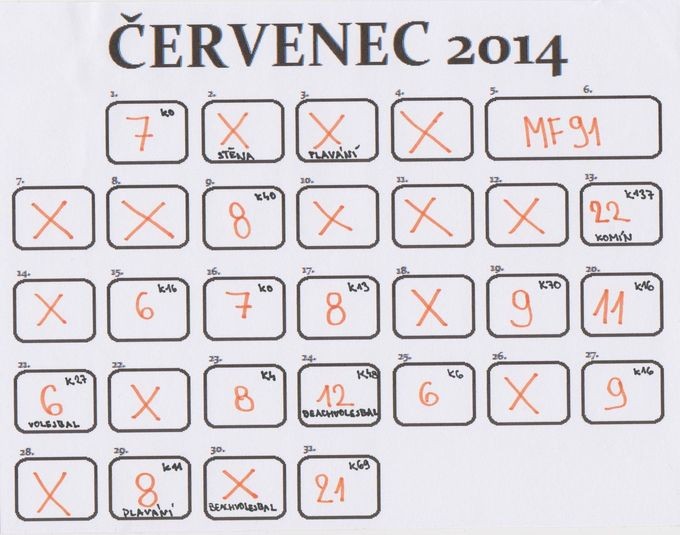 ČERVENEC 2014
1. 2. 3. 4. 5. 6.
7 K0 X X X MF91
STĚNA PLAVÁNÍ
7. 8. 9. 10. 11. 12. 13.
X X 8 K40 X X X 22 K137
KOMÍN
14. 15. 16. 17. 18. 19. 20.
X 6 K16 7 K0 8 K13 X 9 K70 11 K16
21. 22. 23. 24. 25. 26. 27.
6 K27 X 8 K4 12 K48 6 K6 X 9 K16
VOLEJBAL BEACHVOLEJBAL
28. 29. 30. 31.
X 8 K11 X 21 K69
PLAVÁNÍ BEACHVOLEJBAL